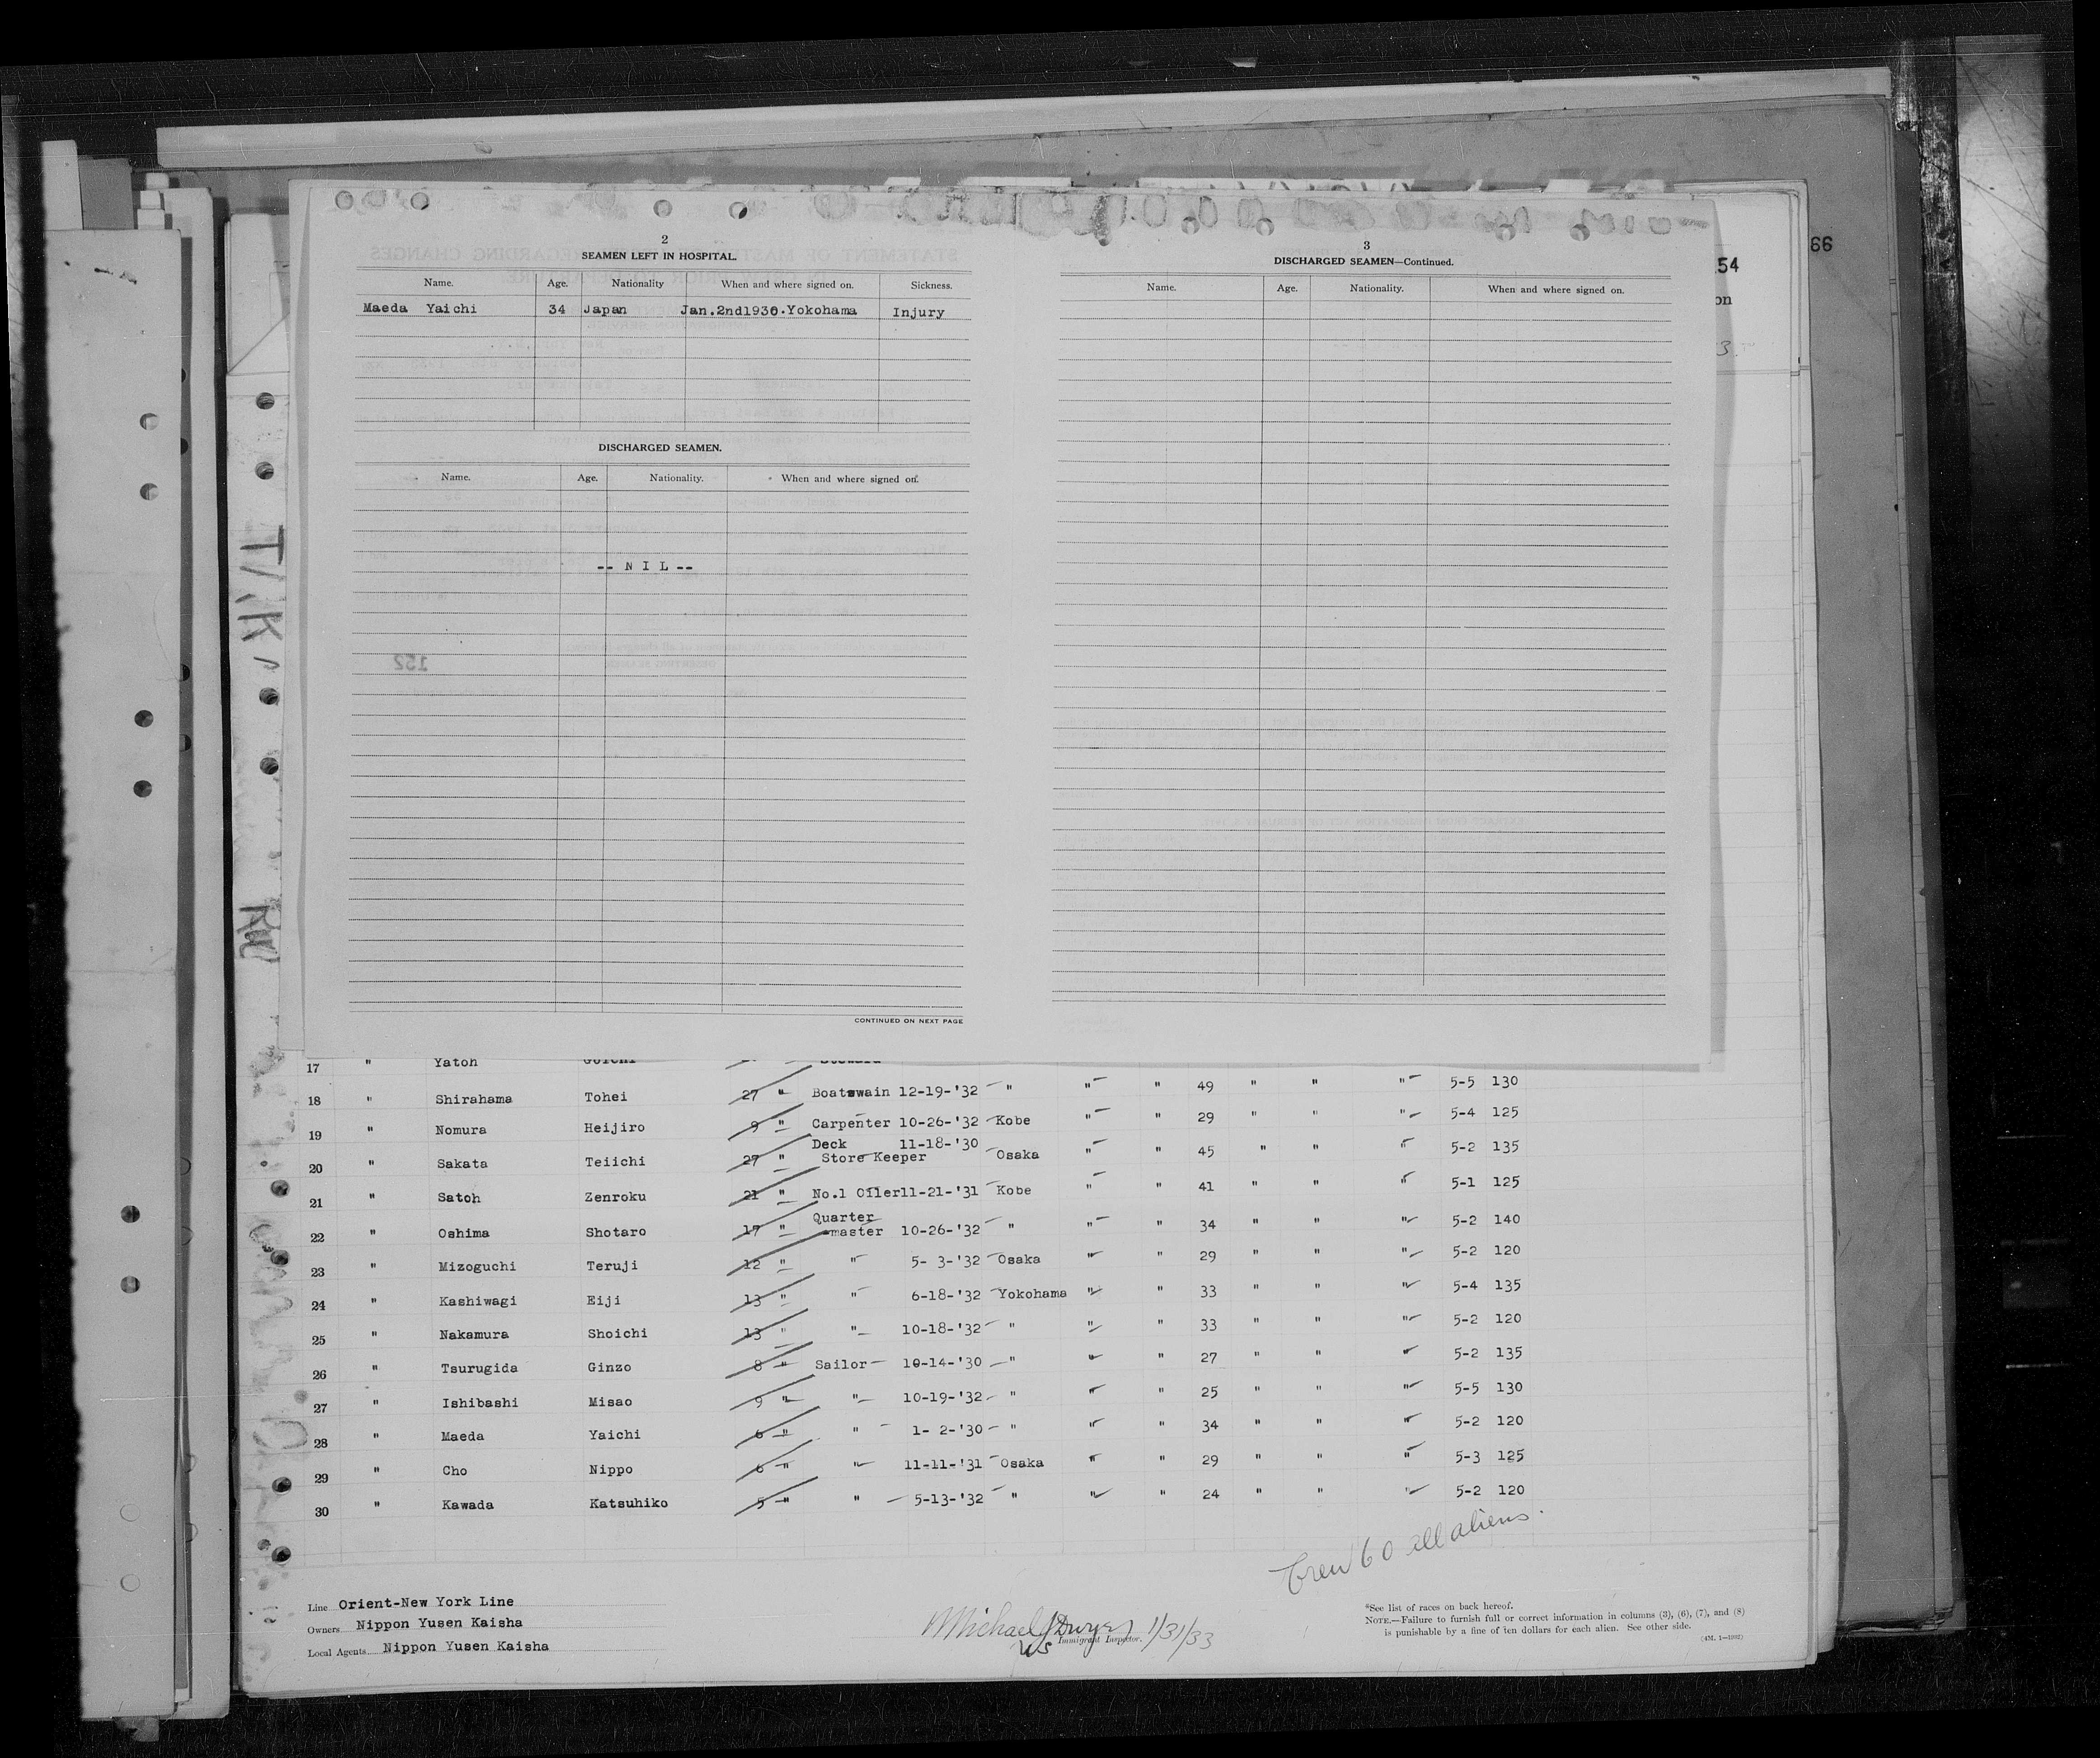 2
SEAMEN LEFT IN HOSPITAL.
Name. Age. Nationality When and where signed on. Sickness.
Maeda Yaichi 34 Japan Jan.2nd1930.Yokohama Injury
DISCHARGED SEAMEN.
Name. Age. Nationality. When and where signed on.
-- N I L --
CONTINUED ON NEXT PAGE
3
DISCHARGED SEAMEN—Continued.
Name. Age. Nationality. When and where signed on.
66
154
on
3
152
17 " Yatoh Goichi Steward
18 " Shirahama Tohei 27 " Boatswain 12-19-'32 " " " 49 " " " 5-5 130
19 " Nomura Heijiro 9 " Carpenter 10-26-'32 Kobe " " 29 " " " 5-4 125
20 " Sakata Teiichi 27 " Deck Store Keeper 11-18-'30 Osaka " " 45 " " " 5-2 135
21 " Satoh Zenroku 21 " No.1 Oiler 11-21-'31 Kobe " " 41 " " " 5-1 125
22 " Oshima Shotaro 17 " Quarter -master 10-26-'32 " " " 34 " " " 5-2 140
23 " Mizoguchi Teruji 12 " " 5- 3-'32 Osaka " " 29 " " " 5-2 120
24 " Kashiwagi Eiji 13 " " 6-18-'32 Yokohama " " 33 " " " 5-4 135
25 " Nakamura Shoichi 13 " " 10-18-'32 " " " 33 " " " 5-2 120
26 " Tsurugida Ginzo 8 " Sailor 10-14-'30 " " " 27 " " " 5-2 135
27 " Ishibashi Misao 9 " " 10-19-'32 " " " 25 " " " 5-5 130
28 " Maeda Yaichi 6 " " 1- 2-'30 " " " 34 " " " 5-2 120
29 " Cho Nippo 6 " " 11-11-'31 Osaka " " 29 " " " 5-3 125
30 " Kawada Katsuhiko 5 " " 5-13-'32 " " " 24 " " " 5-2 120
Crew 60 all aliens.
Line Orient-New York Line
Owners Nippon Yusen Kaisha
Local Agents Nippon Yusen Kaisha
Michael J Dwyer 1/31/33
US Immigrant Inspector.
*See list of races on back hereof.
NOTE.—Failure to furnish full or correct information in columns (3), (6), (7), and (8)
is punishable by a fine of ten dollars for each alien. See other side.